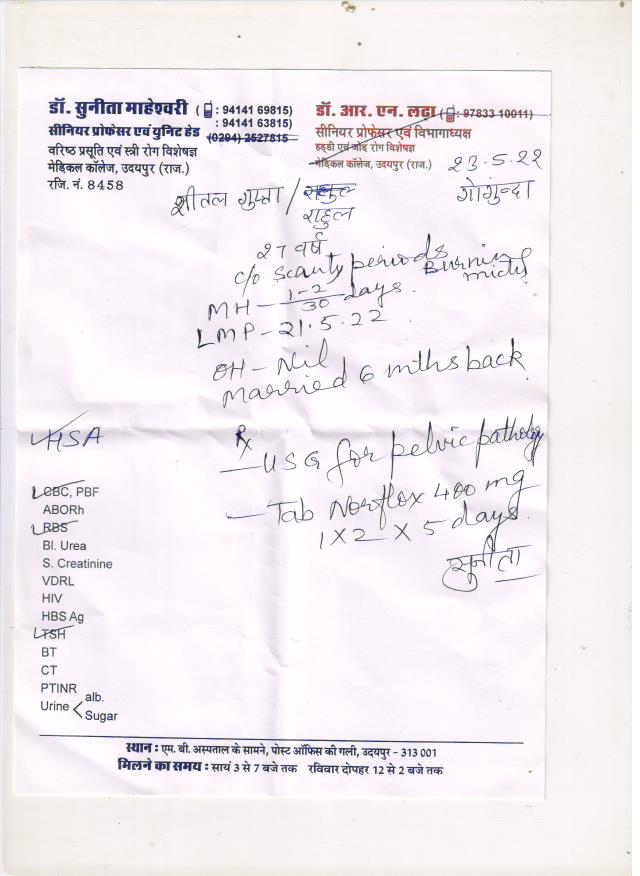 डॉ. सुनीता माहेश्वरी ( : 94141 69815)
: 94141 63815)
सीनियर प्रोफेसर एवं युनिट हेड (0294) 2527815
वरिष्ठ प्रसूति एवं स्त्री रोग विशेषज्ञ
मेडिकल कॉलेज, उदयपुर (राज.)
रजि. नं. 8458
डॉ. आर. एन. लढ़ा ( : 97833 10011)
सीनियर प्रोफेसर एवं विभागाध्यक्ष
हड्डी एवं जोड़ रोग विशेषज्ञ
मेडिकल कॉलेज, उदयपुर (राज.)
23.5.22
शीतल गुप्ता / राहुल
गोगुन्दा
27 वर्ष
c/o scanty periods Burning mict
MH - 1-2/30 days.
LMP - 21.5.22
OH - Nil
Married 6 mths back
HSA
℞
- USG for pelvic pathology
- Tab Norflox 400 mg
1 X 2 X 5 days.
सुनीता
CBC, PBF
ABORh
RBS
Bl. Urea
S. Creatinine
VDRL
HIV
HBS Ag
TSH
BT
CT
PTINR
Urine < alb.
Sugar
स्थान : एम. बी. अस्पताल के सामने, पोस्ट ऑफिस की गली, उदयपुर - 313 001
मिलने का समय : सायं 3 से 7 बजे तक रविवार दोपहर 12 से 2 बजे तक